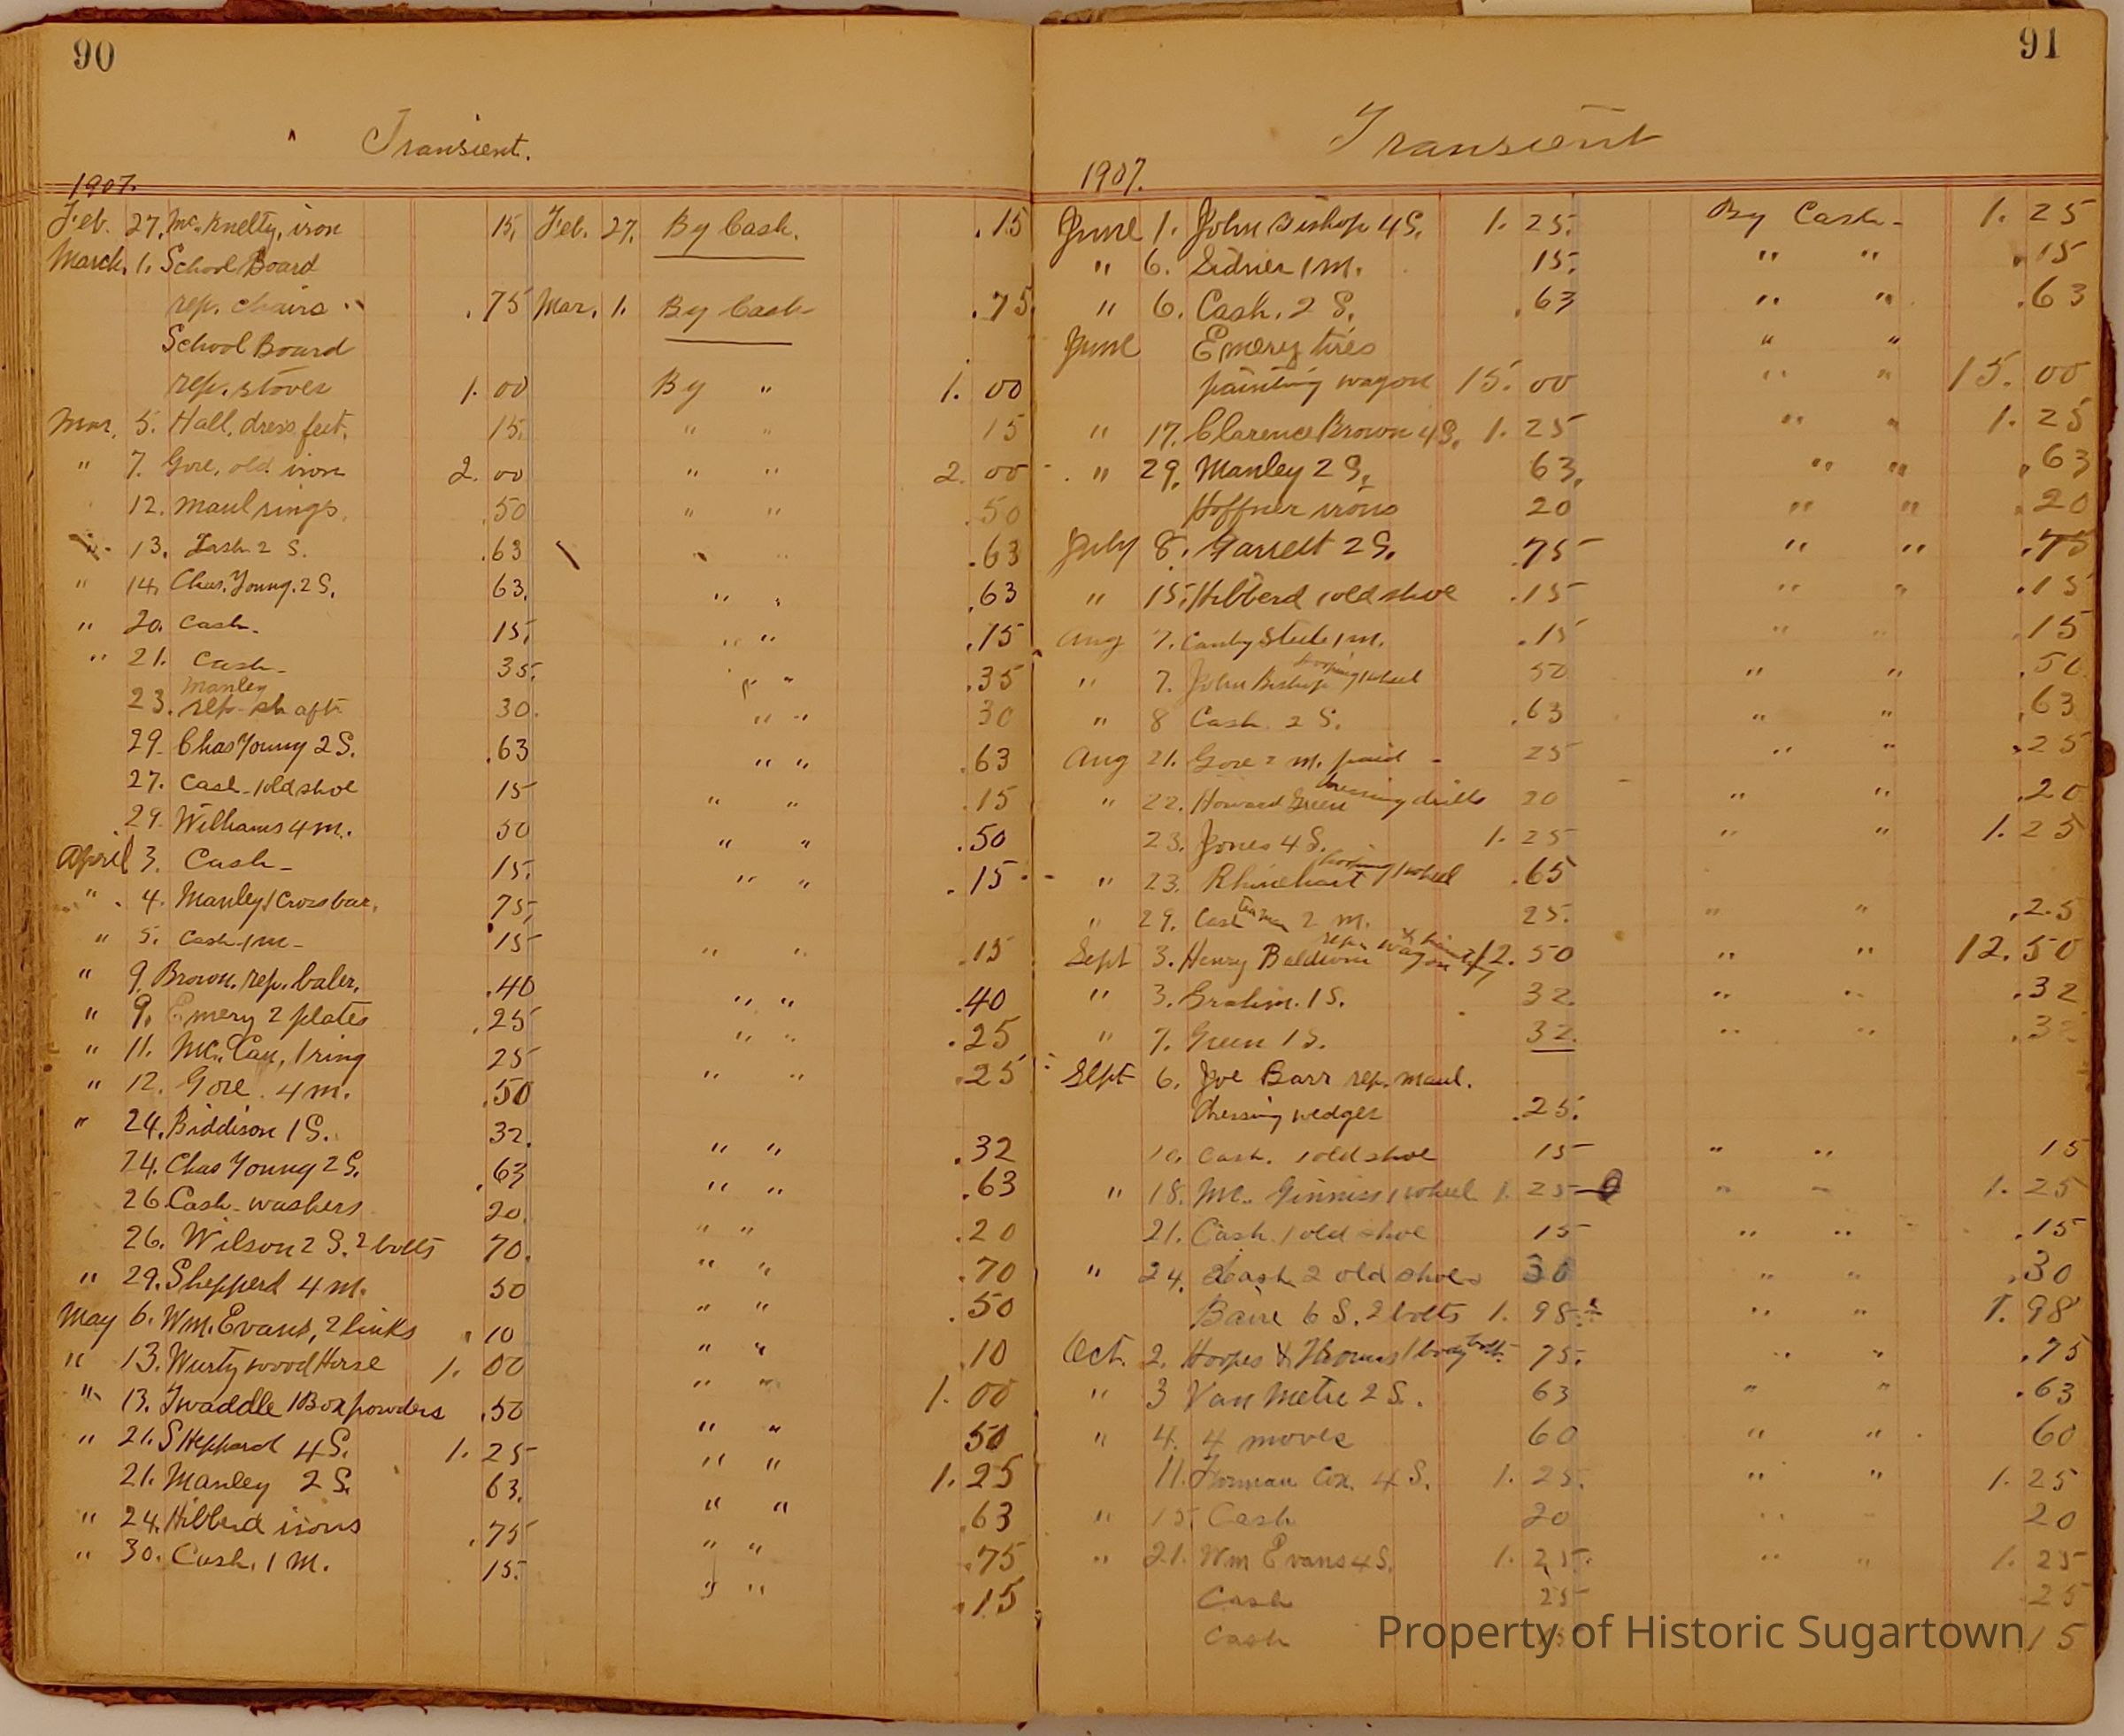 90
Transient.
1907.
Feb. 27. Mc. Knelty, iron 15. Feb. 27. By Cash. .15
March. 1. School Board
rep. chairs " .75 Mar. 1. By Cash .75
School Board
rep. stoves 1.00 By " 1.00
Mar. 5. Hall, dress, feet. 15. " " 15
" 7. Gore, old iron 2.00 " " 2.00
12. maul rings. .50 " " .50
" 13. Cash 2 S. .63 " " .63
" 14. Chas. Young. 2 S. 63. " " .63
" 20. Cash. 15. " " .15
" 21. Cash 35. " " .35
Manley
23. rep. shaft 30. " " 30
29. Chas Young 2 S. .63 " " .63
27. Cash 1 old shoe 15 " " .15
29. Williams 4 m. 50 " " .50
April 3. Cash 15. " " .15
" 4. Manley 1 Crossbar. 75.
" 5. Cash 1 m 15 " " .15
" 9. Brown. rep. baler. .40 " " .40
" 9. Emery 2 plates .25 " " .25
" 11. Mc. Can, 1 ring 25 " " .25
" 12. Gore. 4 m. .50
" 24. Biddison 1 S. 32. " " .32
24. Chas Young 2 S. .63 " " .63
26 Cash washers 20. " " .20
26. Wilson 2 S. 2 bolts 70. " " .70
" 29. Shepperd 4 m. 50 " " .50
May 6. Wm. Evans, 2 links .10 " " .10
" 13. Wurty wood Horse 1.00 " " 1.00
" 13. Twaddle 1 Box powders .50 " " 50
" 21. Sheppard 4 S. 1.25 " " 1.25
21. Manley 2 S. 63. " " .63
" 24. Hibberd irons .75 " " .75
" 30. Cash, 1 M. 15. " " .15
91
Transient
1907.
June 1. John Bishop 4 S. 1.25. By Cash 1.25
" 6. Sidner 1 m. 15. " " .15
" 6. Cash. 2 S. .63 " " .63
June Emery tires " "
painting wagon 15.00 " " 15.00
" 17. Clarence Brown 4 S. 1.25 " " 1.25
" 29. Manley 2 S. 63. " " .63
Hoffner irons 20 " " .20
July 8. Garrett 2 S. .75 " " .75
" 15. Hibberd 1 old shoe .15 " " .15
Aug 7. Canby Steele 1 m. .15 " " .15
" 7. John Bishop 1 wheel 50 " " .50
" 8 Cash 2 S. .63 " " .63
Aug 21. Gore 2 m. paid 25 " " .25
" 22. Howard Green dressing drills 20 " " .20
23. Jones 4 S. 1.25 " " 1.25
" 23. Rhinehart 1 wheel .65
" 29. Cash 2 m. 25. " " .25
Sept 3. Henry Baldwin rep. wagon 12.50 " " 12.50
" 3. Grahm. 1 S. 32. " " .32
" 7. Green 1 S. 32. " " .32
Sept 6. Joe Barr rep. maul.
dressing wedges .25.
10. Cash. 1 old shoe 15 " " 15
" 18. Mc. Ginniss 1 wheel 1.25 " " 1.25
21. Cash 1 old shoe 15 " " .15
" 24. Cash 2 old shoes 30 " " .30
Baire 6 S. 2 bolts 1.98 " " 1.98
Oct. 2. Hoopes & Thomas 1 body bolt 75. " " .75
" 3 Van Metre 2 S. 63 " " .63
" 4. 4 moves 60 " " 60
11. Furman Cox. 4 S. 1.25. " " 1.25
" 15 Cash 20 " " 20
" 21. Wm Evans 4 S. 1.25. " " 1.25
Cash 25 25
Cash 15
Property of Historic Sugartown